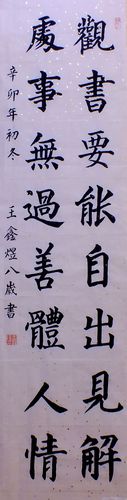 觀書要能自出見解
處事無過善體人情
辛卯年初冬
王鑫煜八歲書